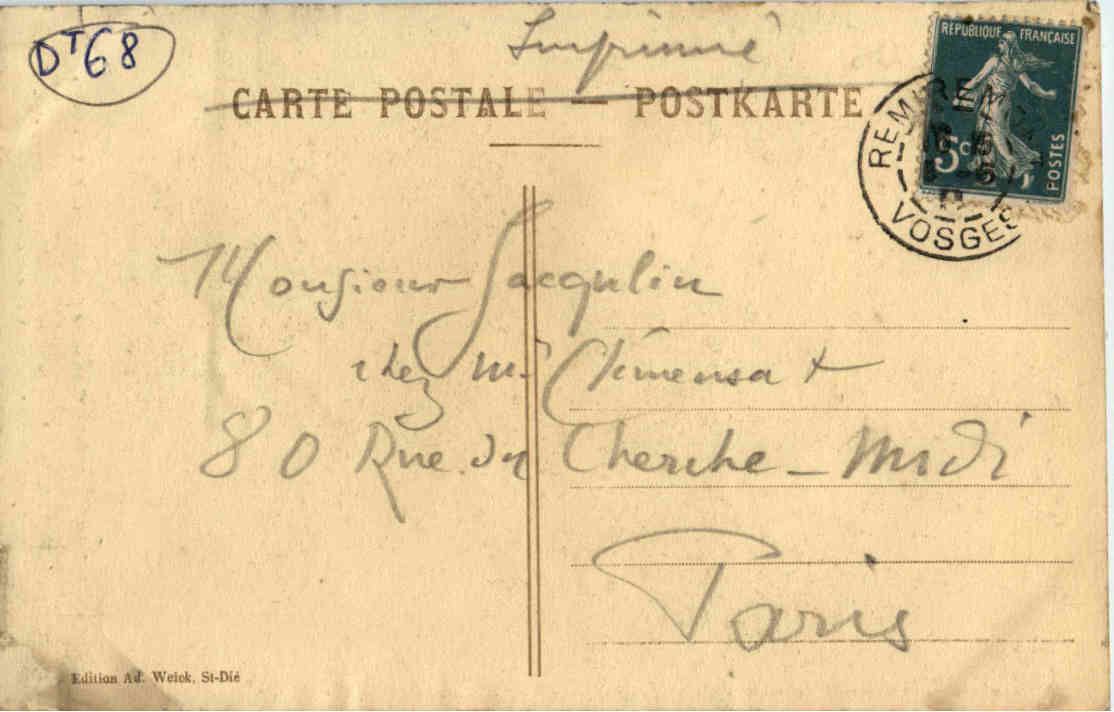 DT68
Imprimé
CARTE POSTALE — POSTKARTE
RÉPUBLIQUE FRANÇAISE
5c
POSTES
VOSGES
Monsieur Jacqulin
chez Mr Clémensat
80 Rue du Cherche-Midi
Paris
Edition Ad. Weick, St-Dié